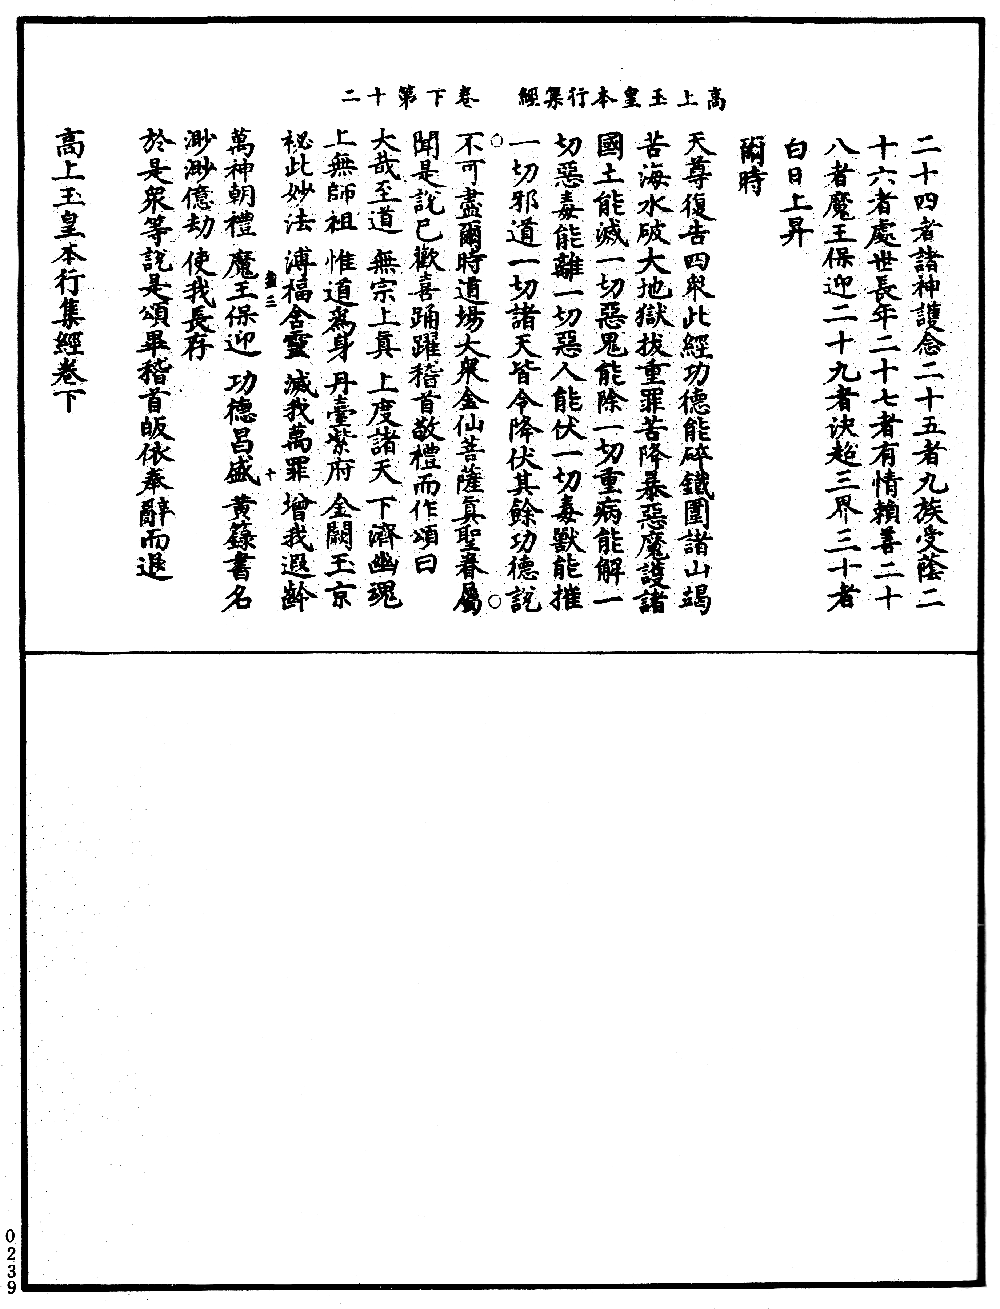 高上玉皇本行集經　卷下第十二
二十四者諸神護念二十五者九族受蔭二
十六者處世長年二十七者有情賴善二十
八者魔王保迎二十九者決超三界三十者
白日上昇
爾時
天尊復告四衆此經功德能碎鐵圍諸山竭
苦海水破大地獄拔重罪苦降暴惡魔護諸
國土能滅一切惡鬼能除一切重病能解一
切惡毒能離一切惡人能伏一切毒獸能摧
一切邪道一切諸天皆令降伏其餘功德說
不可盡爾時道場大衆金仙菩薩眞聖眷屬
聞是說已歡喜踊躍稽首敬禮而作頌曰
大哉至道　無宗上眞　上度諸天　下濟幽魂
上無師祖　惟道爲身　丹臺紫府　金闕玉京
祕此妙法　溥福含靈　滅我萬罪　增我遐齡
盈三　十
萬神朝禮　魔王保迎　功德昌盛　黃籙書名
渺渺億劫　使我長存
於是衆等說是頌畢稽首皈依奉辭而退
高上玉皇本行集經卷下
0239